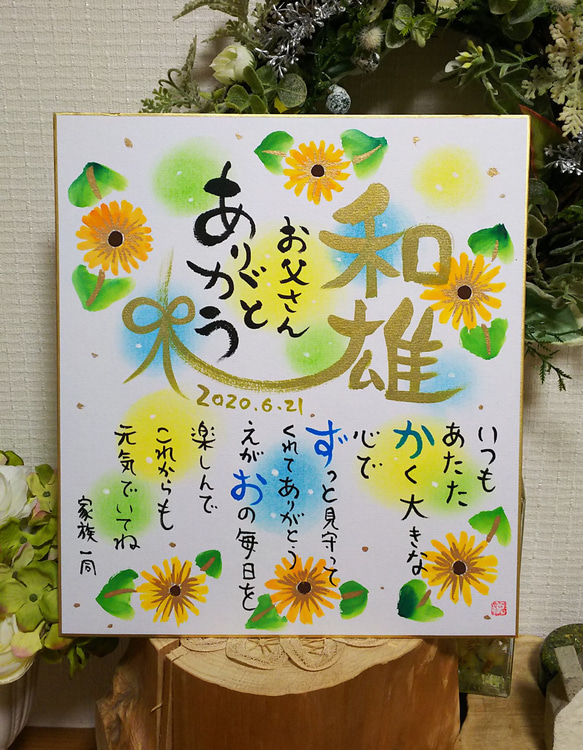 和雄
お父さん
ありがとう
2020.6.21
いつも
あたた
かく大きな
心で
ずっと見守って
くれてありがとう
えがおの毎日を
楽しんで
これからも
元気でいてね
家族一同